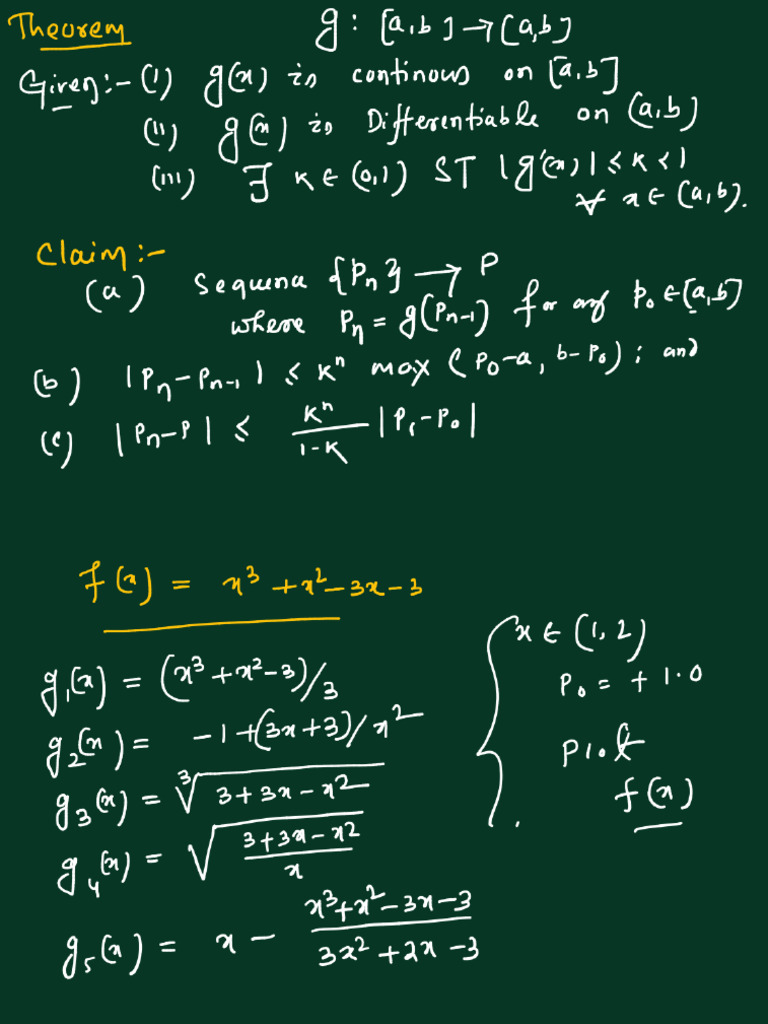 Theorem g : [a,b] → [a,b]
Given:- (i) g(x) is continous on [a,b]
(ii) g(x) is Differentiable on (a,b)
(iii) ∃ K ∈ (0,1) ST |g'(x)| ≤ K < 1
∀ x ∈ (a,b).
Claim:-
(a) Sequence {Pn} → P
where Pn = g(Pn-1) for any P0 ∈ [a,b]
(b) |Pn - Pn-1| ≤ K^n max (P0-a, b-P0) ; and
(c) |Pn-P| ≤ K^n/(1-K) |P1-P0|
f(x) = x³ + x² - 3x - 3
g1(x) = (x³ + x² - 3)/3
g2(x) = -1 + (3x+3)/x²
g3(x) = ∛(3 + 3x - x²)
g4(x) = √((3+3x-x²)/x)
g5(x) = x - (x³+x²-3x-3)/(3x²+2x-3)
{ x ∈ (1,2)
P0 = + 1.0
Plot
f(x)